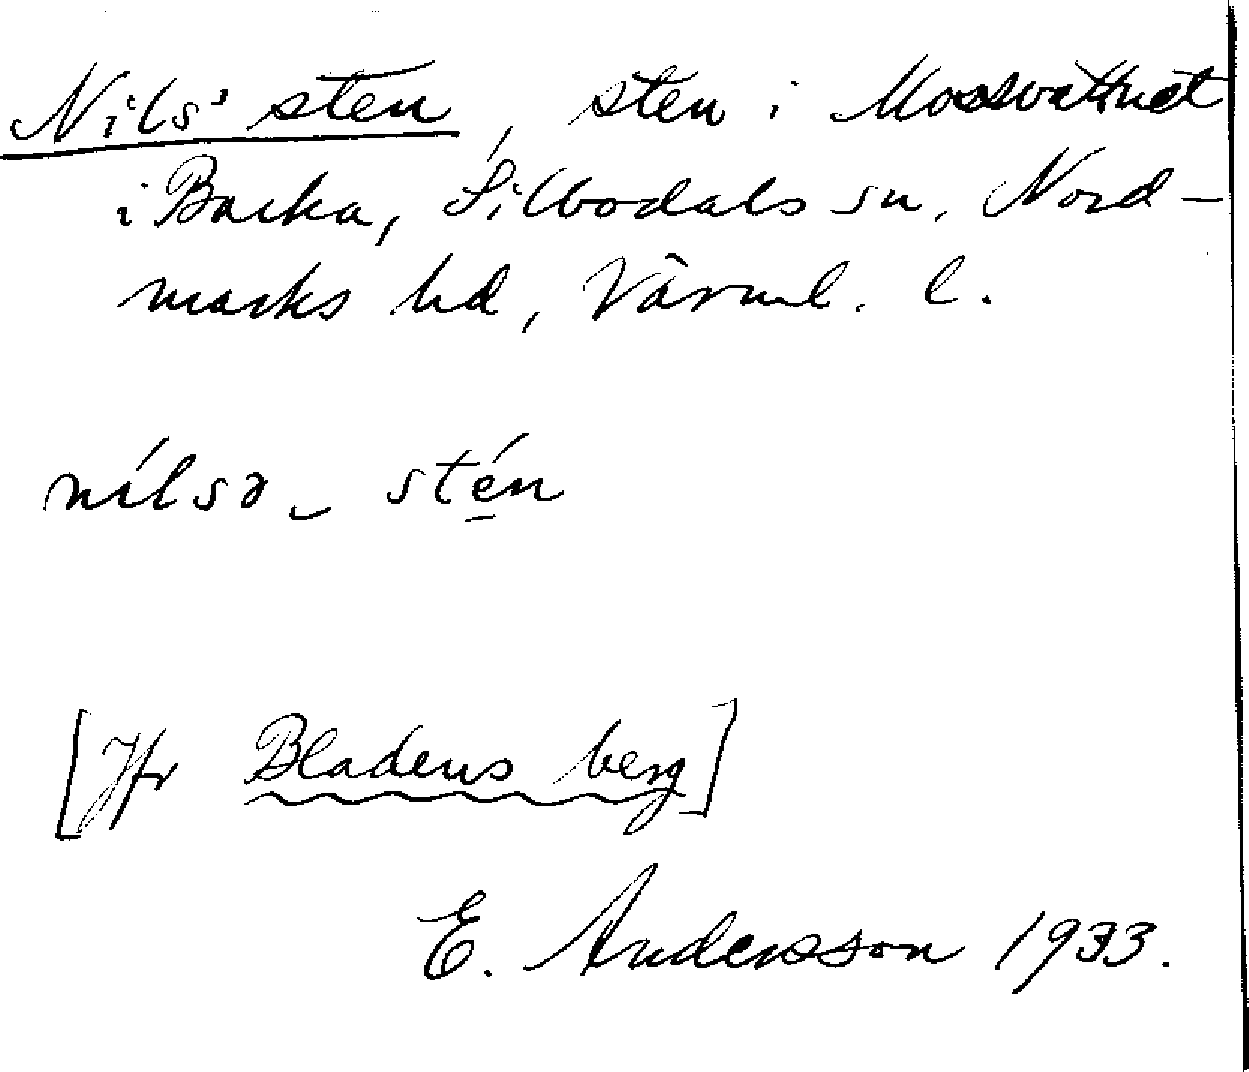 Nils' sten, sten i Mossvattnet
i Backa, Silbodals sn, Nord-
marks hd, Värml. l.
nílsə ‿ stén
[Jfr Bladens berg]
E. Andersson 1933.